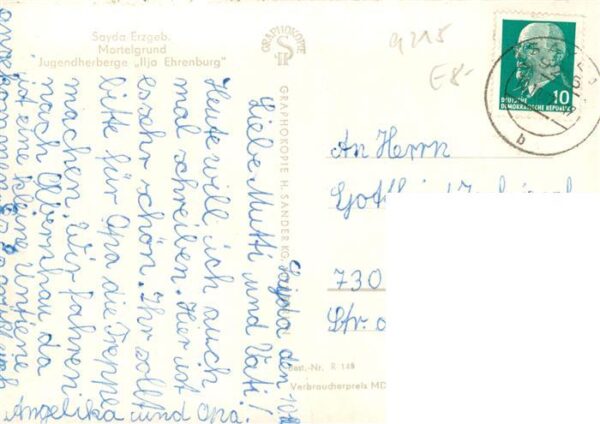 Sayda Erzgeb.
Mortelgrund
Jugendherberge „Ilja Ehrenburg"
GRAPHOKOPIE
GRAPHOKOPIE H. SANDER KG,
9215
E8-
DEUTSCHE
DEMOKRATISCHE REPUBLIK
10
b
An Herrn
730
Str.
Best.-Nr. R 148
Verbraucherpreis MD
Sayda den 10
Liebe Mutti und Vati!
Heute will ich auch
mal schreiben. Hier ist
es sehr schön. Ihr sollt
bitte für Opa die Treppe
machen. Wir fahren
nach Olbernhau da
ist eine kleine
Angelika und Opa.